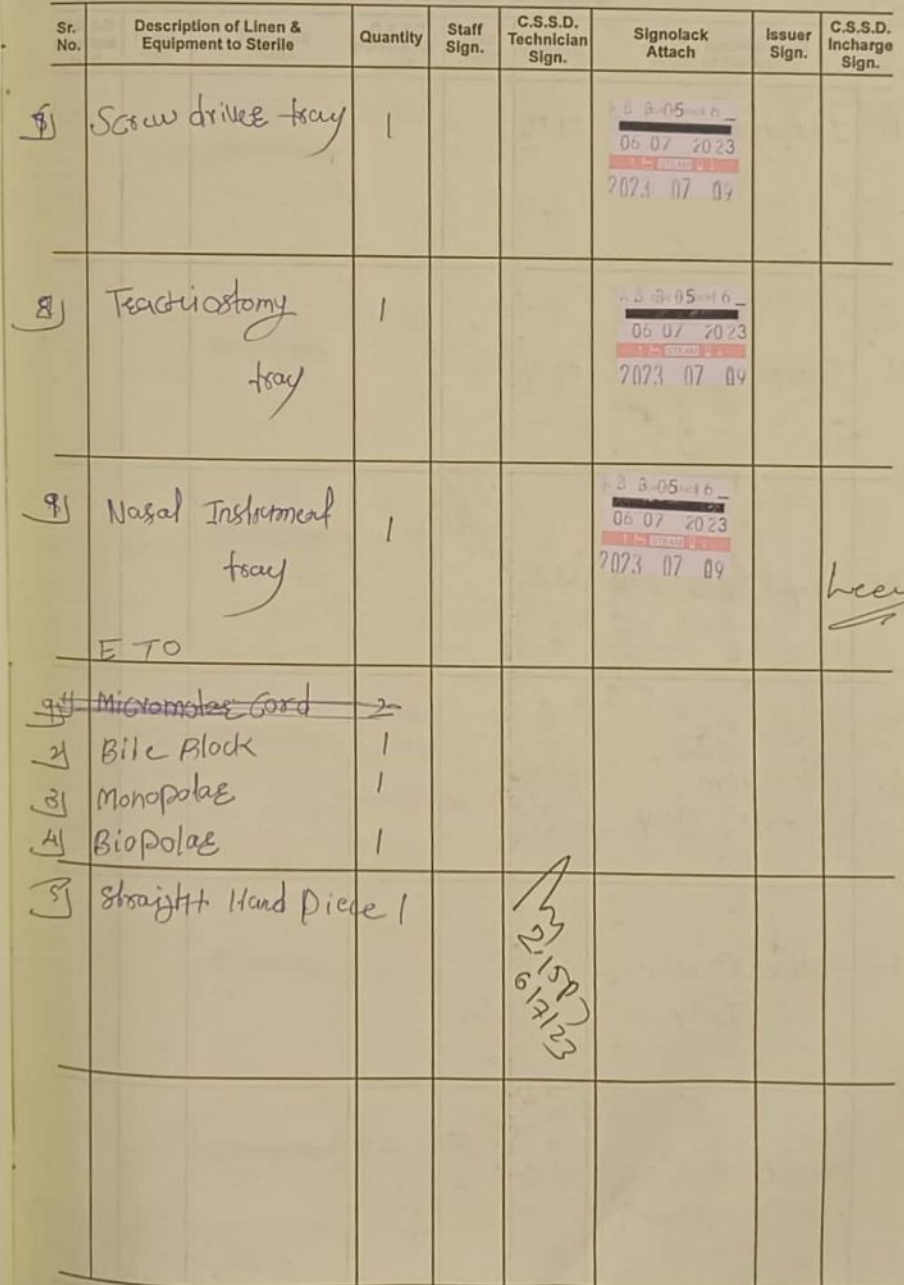 Sr. No. Description of Linen & Equipment to Sterile Quantity Staff Sign. C.S.S.D. Technician Sign. Signolack Attach Issuer Sign. C.S.S.D. Incharge Sign.
Screw driver tray 1
06 07 2023
STEAM
2023 07 09
8) Teachiostomy 1
tray
06 07 2023
STEAM
2023 07 09
9) Nasal Instrument 1
tray
06 07 2023
STEAM
2023 07 09
ETO
Micromotor Cord 2
2) Bite Block 1
3) Monopolar 1
4) Biopolar 1
5) Straight Hand Piece 1
2.15P
6/7/23